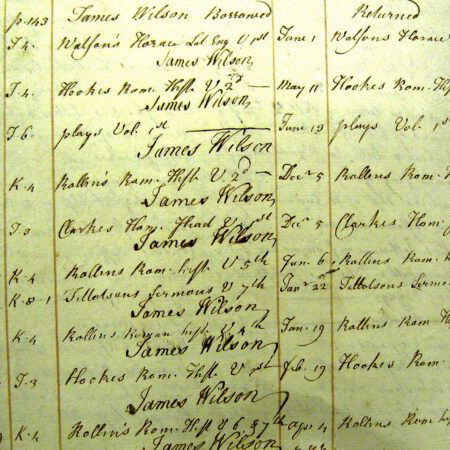 p. 143 James Wilson Borrowed Returned
T. 4. Watson's Horace Lat Eng V 1st June 1 Watsons Horace
James Wilson
T. 4. Hookes Rom. Hist. V 2d — May 11 Hookes Rom. Hist
James Wilson
T. 6. plays Vol. 1st June 13 plays Vol. 1st
James Wilson
K. 4 Rollin's Rom. Hist. V 2d — Decr 5 Rollins Rom. H
James Wilson
Clarkes Hom. Iliad V 1st Decr 5 Clarkes Hom.
James Wilson
K. 4 Rollins Rom. hist. V 5th Jan. 6 Rollins Rom. h
K. 8. 1 Tillotsons Sermons V 7th Janr 22 Tillotsons Sermo
James Wilson
K. 4 Rollins hist. V 4th Jan. 19 Rollins Rom H
James Wilson
T. 3 Hookes Rom. Hist. V 1st Feb. 19 Hookes Rom.
James Wilson
K. 4 Rollin's Rom. Hist V 6 & 7th Apr. 4 Rollins Rom hi
James Wilson